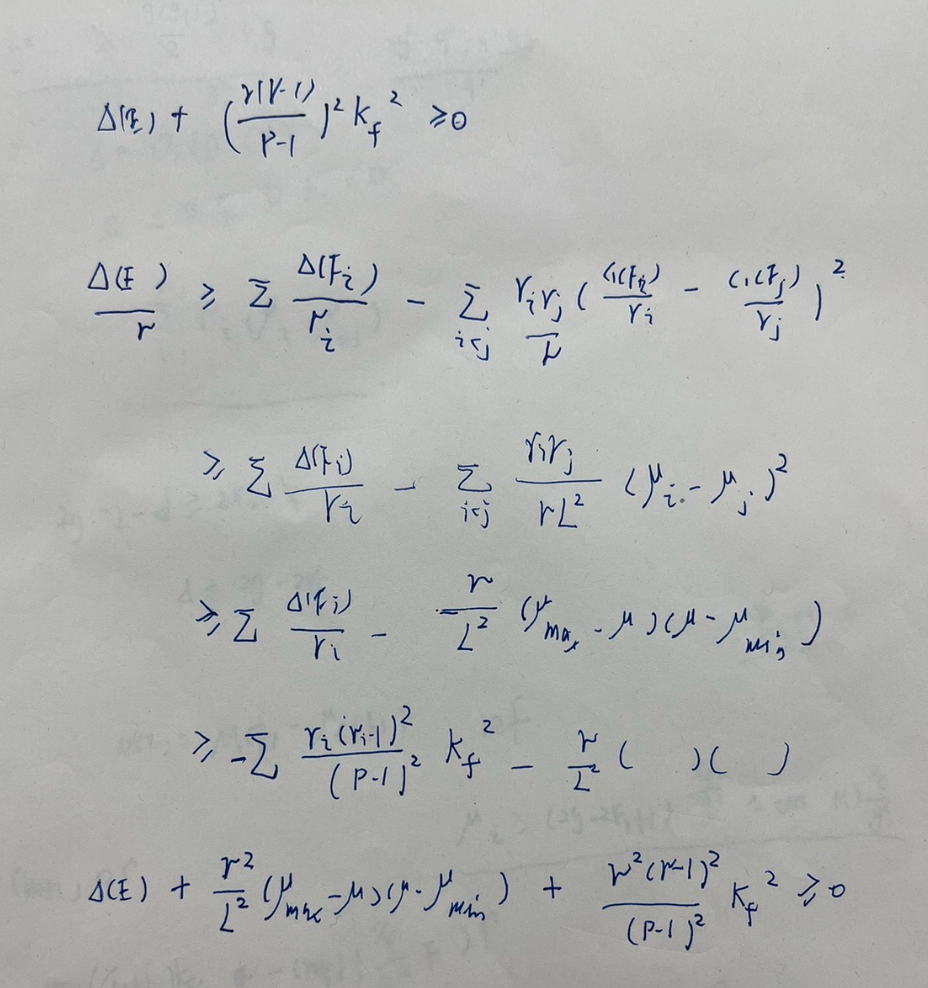 Δ(E) + (r(r-1)/P-1)² K_f² ≥ 0
Δ(E)/r ≥ Σ Δ(F_i)/r_i - Σ_{i<j} r_i r_j/r (c_1(F_i)/r_i - c_1(F_j)/r_j)²
≥ Σ Δ(F_i)/r_i - Σ_{i<j} r_i r_j/rL² (μ_i - μ_j)²
≥ Σ Δ(F_i)/r_i - r/L² (μ_max - μ)(μ - μ_min)
≥ -Σ r_i(r_i-1)²/(P-1)² K_f² - r/L² ( )( )
Δ(E) + r²/L² (μ_max - μ)(μ - μ_min) + r²(r-1)²/(P-1)² K_f² ≥ 0